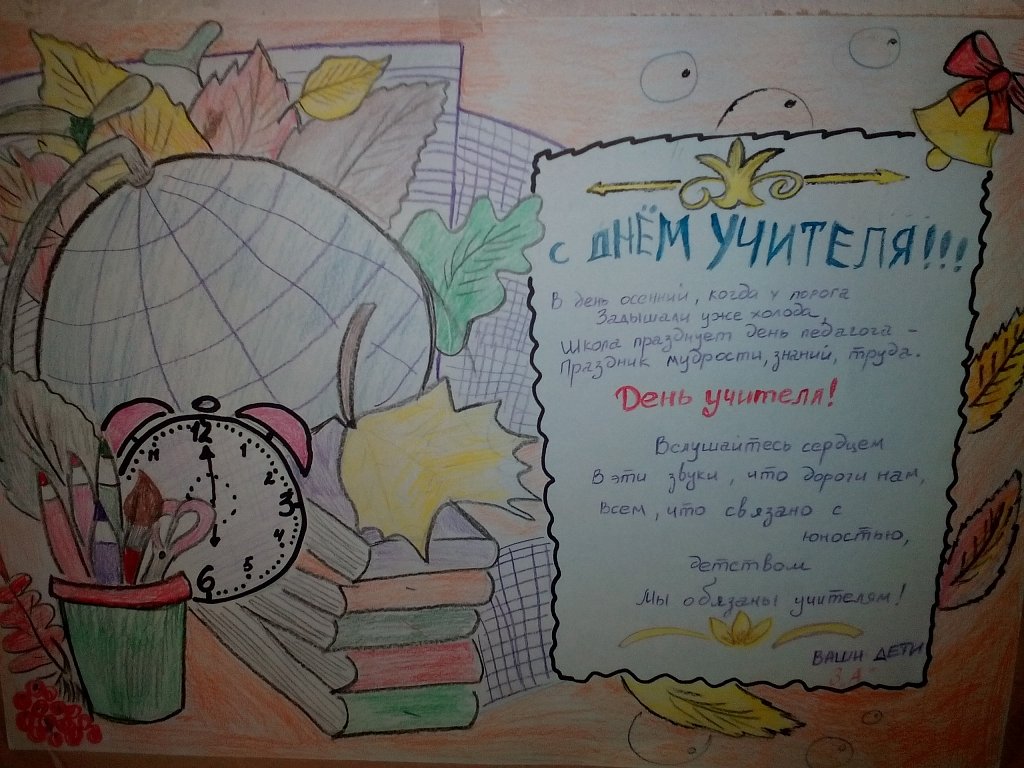 с ДНЁМ УЧИТЕЛЯ!!!
В день осенний, когда у порога
Задышали уже холода,
Школа празднует день педагога –
Праздник мудрости, знаний, труда.
День учителя!
Вслушайтесь сердцем
В эти звуки, что дороги нам,
Всем, что связано с
юностью,
детством
Мы обязаны учителям!
ВАШИ ДЕТИ
12
11
1
2
3
4
5
6